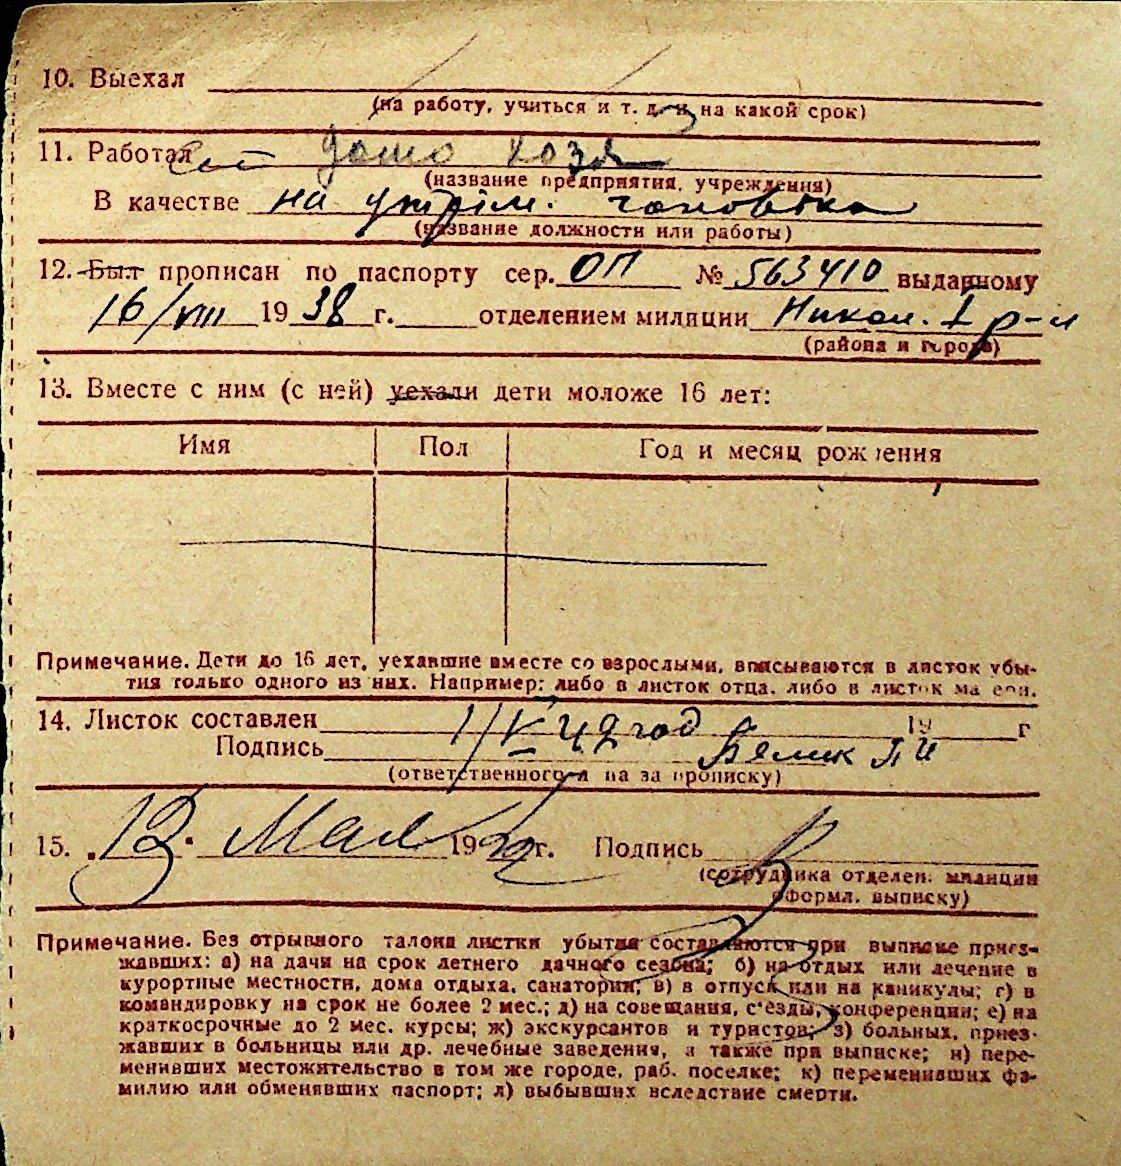 10. Выехал
(на работу, учиться и т. д. и на какой срок)
11. Работал дomo хозя
(название предприятия, учреждения)
В качестве на
(название должности или работы)
12. Был прописан по паспорту сер. ОП № 563410 выданному
16/VIII 1938 г. отделением милиции Никол. I р-н
(района и города)
13. Вместе с ним (с ней) уехали дети моложе 16 лет:
Имя Пол Год и месяц рождения
Примечание. Дети до 16 лет, уехавшие вместе со взрослыми, вписываются в листок убы-
тия только одного из них. Например: либо в листок отца, либо в листок матери.
14. Листок составлен 1/V 42 год 19 г
Подпись Бялик
(ответственного л на за прописку)
15. 12. Мая 1942 г. Подпись
(сотрудника отделен. милиции
оформл. выписку)
Примечание. Без отрывного талона листки убытия составляются при выписке приез-
жавших: а) на дачи на срок летнего дачного сезона; б) на отдых или лечение в
курортные местности, дома отдыха, санатории; в) в отпуск или на каникулы; г) в
командировку на срок не более 2 мес.; д) на совещания, с'езды, конференции; е) на
краткосрочные до 2 мес. курсы; ж) экскурсантов и туристов; з) больных, приез-
жавших в больницы или др. лечебные заведения, а также при выписке; и) пере-
менивших местожительство в том же городе, раб. поселке; к) переменивших фа-
милию или обменявших паспорт; л) выбывших вследствие смерти.